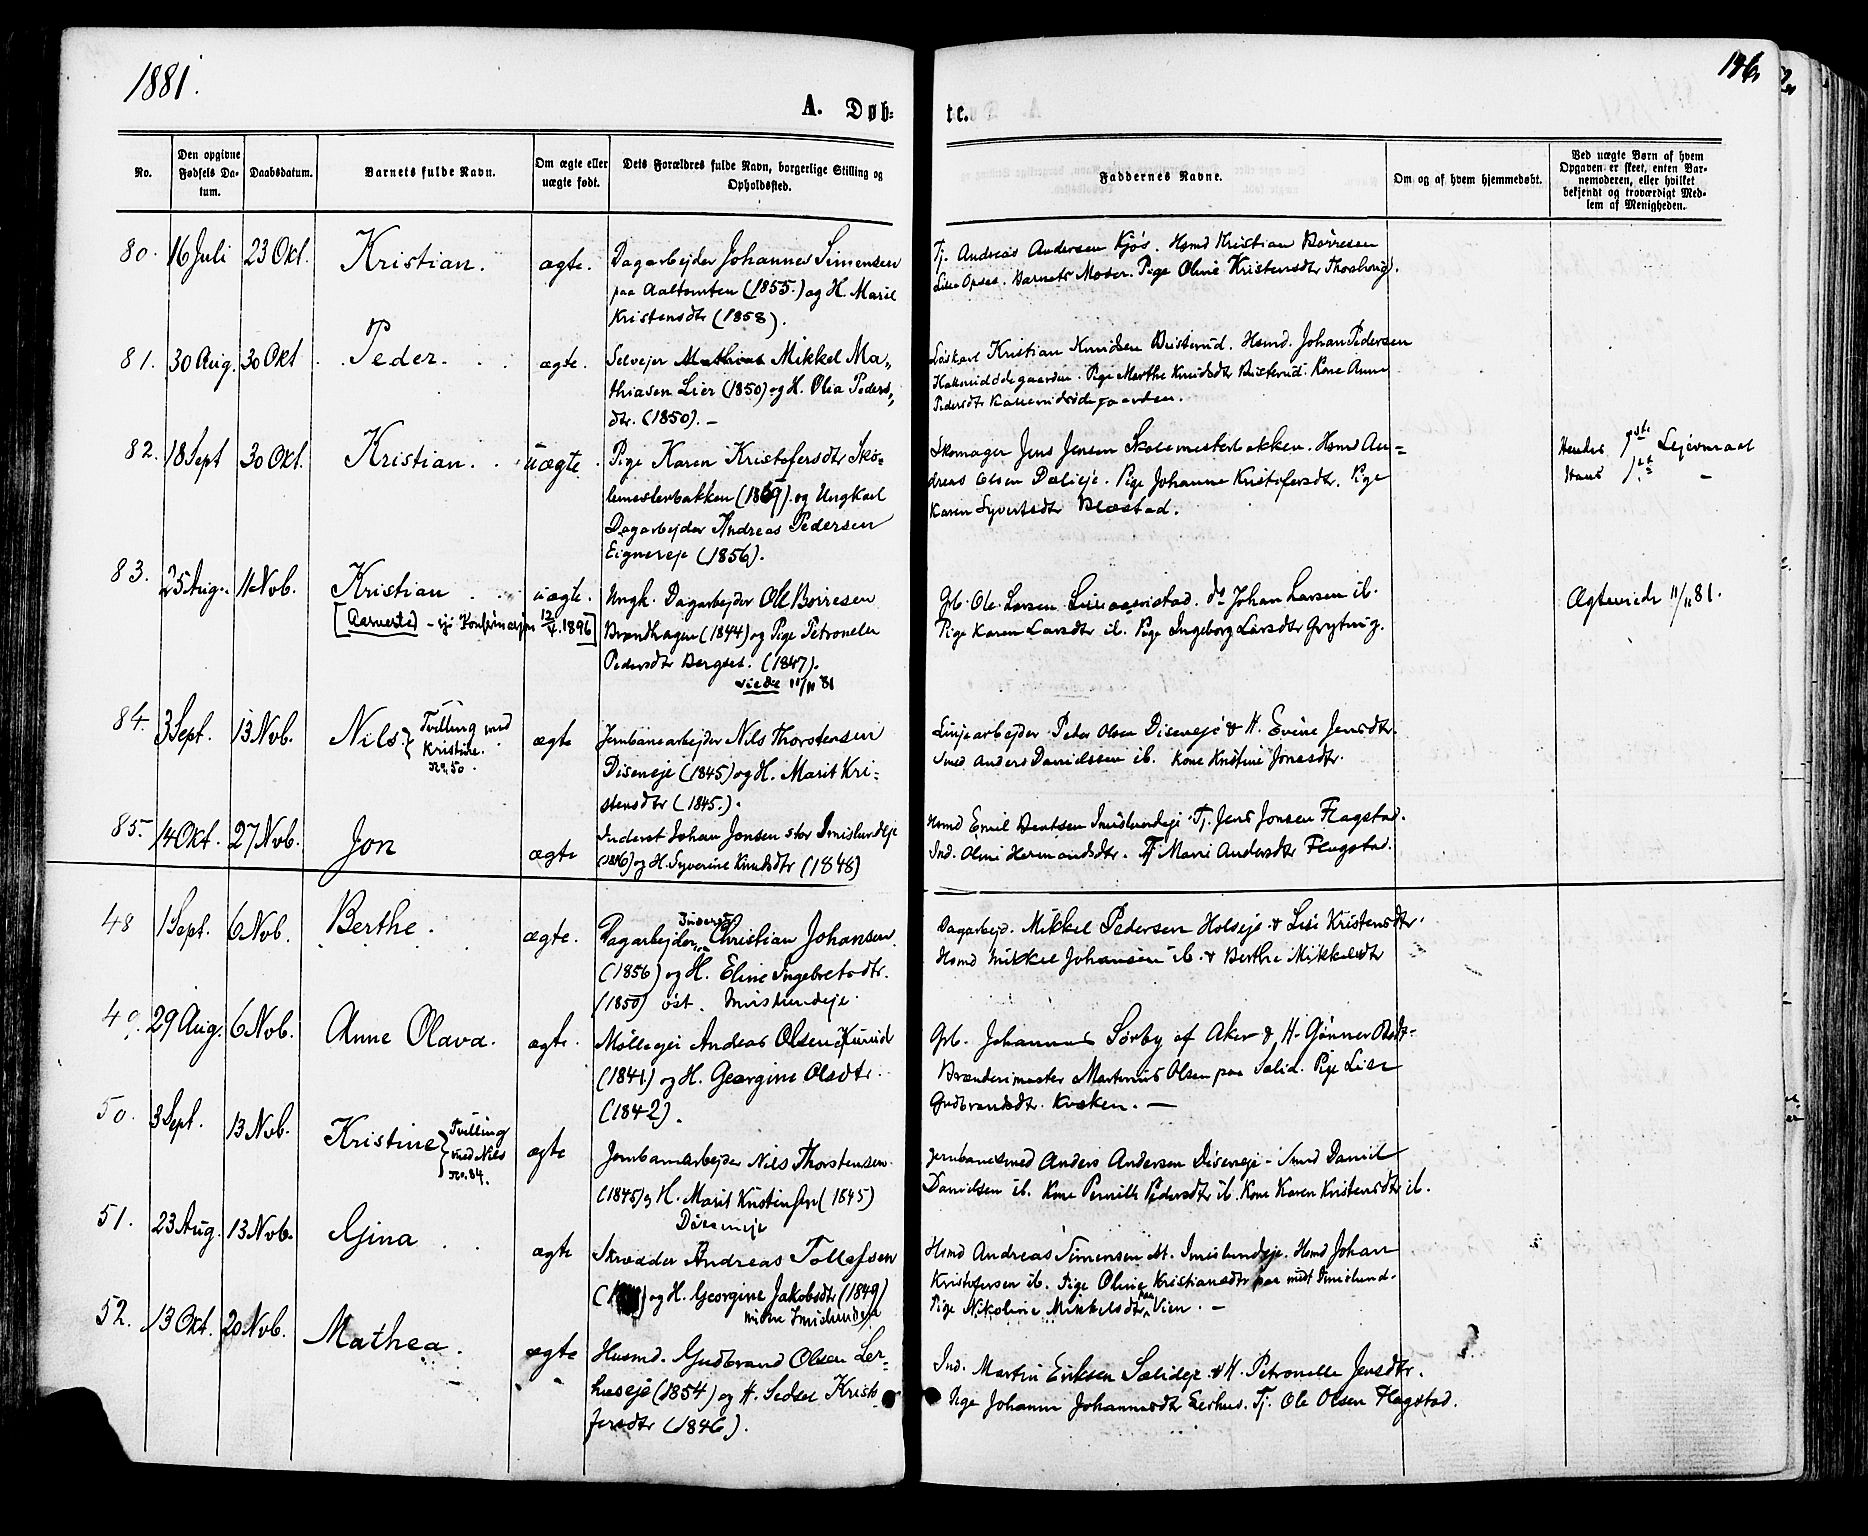 1881.
146
A. Døb-
te.
No.
Den opgivne Fødsels Da-tum.
Daabsdatum.
Barnets fulde Navn.
Om ægte eller uægte født.
Dets Forældres fulde Navn, borgerlige Stilling og Opholdssted.
Faddernes Navne.
Om og af hvem hjemmedøbt.
Ved uægte Børn af hvem Opgaven er skeet, enten Bar-nemoderen, eller hvilket bekjendt og troværdigt Med-lem af Menigheden.
80. 16 Juli 23 Okt. Kristian. ægte. Dagarbejder Johannes Simensen
paa Aaltomten (1855.) og H. Marie
Kristensdtr (1858).
Tj. Andreas Andersen Kjøs. Hsmd Kristian Børresen
Lille Opset. Barnets Moder. Pige Oline Kristensdtr
81. 30 Aug. 30 Okt Peder. ægte. Selvejer Mathias Mikkel Ma-
thiasen Lier (1850) og H. Olia Peders-
dtr. (1850). -
Løskarl Kristian Knudsen Bisterud. Hsmd. Johan Pedersen
Pige Marthe Knudsdtr Bisterud. Kone Anne
Pedersdtr
82. 18 Sept 30 Okt. Kristian. uægte. Pige Karen Kristofersdtr Sko-
lemesterbakken og Ungkarl
Dagarbejder Andreas Pedersen
Eignereje (1856).
Skomager Jens Jensen Skolemesterbakken. Hsmd An-
dreas Olsen Dælieje. Pige Johanne Kristofersdtr. Pige
Karen Syvertsdtr Blæstad.
Hendes 1ste Lejermaal
Hans 1ste -
83. 25 Aug. 11 Nob. Kristian uægte. Ungk. Dagarbejder Ole Børresen
[Aarnerød - Konfirmasjon 12/4.1896]
Brændhagen (1844) og Pige Petronelle
Pedersdtr Bergset. (1847).
viede 11/11 81
Grb. Ole Larsen do Johan Larsen ib.
Pige Karen Larsdtr ib. Pige Ingeborg Larsdtr Gryting.
Ægteviede 11/11 81.
84. 3 Sept. 13 Nob. Nils { Tvilling med
Kristine.
No. 50.
ægte Jernbanearbejder Nils Thorstensen
Diseneje (1845) og H. Marit Kri-
stensdtr (1845.).
Linjearbejder Peder Olsen Diseneje & H. Evine Jensdtr.
Smed Anders Danielssen ib. Kone Kristine Jonasdtr.
85. 14 Okt. 27 Nob. Jon ægte Inderst Johan Jonsen stor Imislundeje
(1846) og H. Syverine Knudsdtr (1848)
Hsmd Emil Bentsen Imislundeje. Tj. Jens Jonsen Flagstad.
Ind. Oline Hermandsdtr. Tj Marie Andersdtr Flagstad.
48 1 Sept. 6 Nob. Berthe. ægte. Dagarbejder, Inderst Christian Johansen
(1856) og H. Eline Ingebretsdtr.
(1850) øst. Imislundeje.
Dagarbejd. Mikkel Pedersen Holseje & Lise Kristensdtr.
Hsmd Mikkel Johansen ib. & Berthe Mikkelsdtr
49. 29 Aug. 6 Nob. Anne Olava. ægte. Mølleejer Andreas Olsen
(1841) og H. Georgine Olsdtr.
(1842).
Grb. Johannes Sørby af Aker & H. Gønner
Brænderimester Martinius Olsen paa Sælid. Pige Lise
Gudbrandsdtr. Kvæken. -
50. 3 Sept. 13 Nob. Kristine { Tvilling
med Nils
No. 84.
ægte Jernbanearbejder Nils Thorstensen
(1845) og H. Marit Kristensdtr (1845)
Diseneje
Jernbanesmed Anders Andersen Diseneje - Smed Daniel
Danielsen ib. Kone Pernille Pedersdtr ib. Kone Karen Kristensdtr ib.
51. 23 Aug. 13 Nob. Gina ægte Skrædder Andreas Tollefsen
og H. Georgine Jakobsdtr (1849)
midtre Imislundeje
Hsmd Andreas Simensen Imislundeje. Hsmd Johan
Kristofersen ib. Pige Oline Kristiansdtr paa midt Imislund.
Pige Nikoline Mikkelsdtr paa Vien. -
52. 13 Okt. 20 Nob. Mathea. ægte Husmd. Gudbrand Olsen Ler-
huseje (1854) og H. Sedsel Kristo-
fersdtr (1846).
Ind. Martin Eriksen Sælideje & H. Petronelle Jensdtr.
Pige Johanne Johannesdtr Lerhus. Tj. Ole Olsen Flagstad.